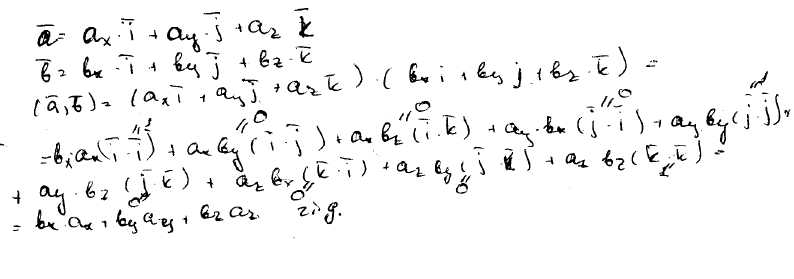 a̅ = aₓ·i̅ + a_y·j̅ + a_z k̅
b̅ = bₓ·i̅ + b_y j̅ + b_z·k̅
(a̅,b̅) = (aₓi̅ + a_y j̅ + a_z k̅)·(bₓ i + b_y j + b_z·k̅) =
= bₓaₓ(i̅·i̅)"1 + aₓb_y(i̅·j̅)"0 + aₓb_z(i̅·k̅)"0 + a_y·bₓ(j̅·i̅)"0 + a_y b_y(j̅·j̅)"1 +
+ a_y·b_z(j̅·k̅)"0 + a_z bₓ(k̅·i̅)"0 + a_z b_y(j k̅)"0 + a_z b_z(k̅·k̅)"1 =
= bₓ·aₓ + b_y a_y + b_z a_z